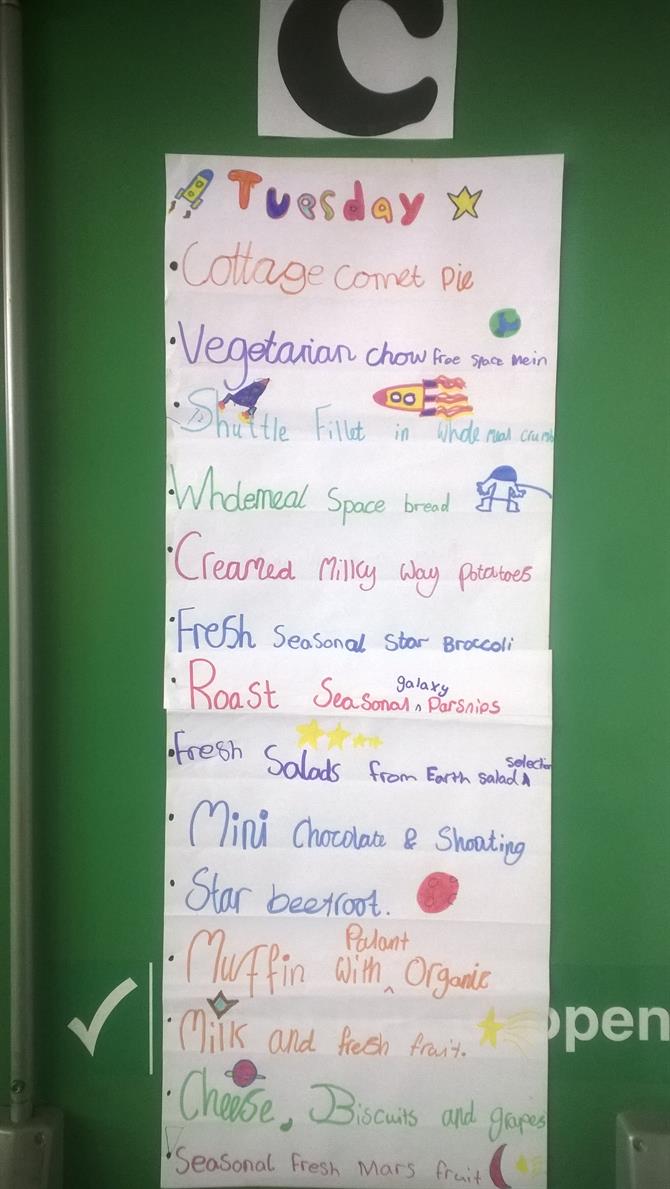 C
Tuesday
• Cottage comet Pie
• Vegetarian chow froe space mein
• Shuttle Fillet in whole meal crumb
• Wholemeal Space bread
• Creamed Milky Way potatoes
• Fresh Seasonal Star Broccoli
• Roast Seasonal galaxy Parsnips
• Fresh Salads from Earth salad selection
• Mini Chocolate & Shooting
• Star beetroot.
• Muffin With Palant Organic
• Milk and fresh fruit.
open
• Cheese, Biscuits and grapes
• Seasonal Fresh Mars fruit